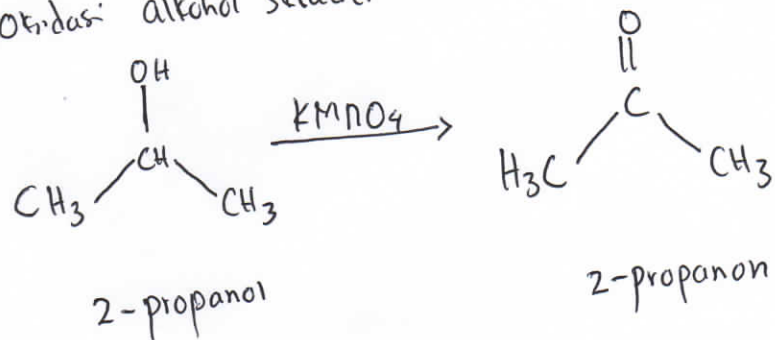 Oksidasi alkohol
OH
CH
CH3
CH3
KMnO4
O
C
H3C
CH3
2-propanol
2-propanon